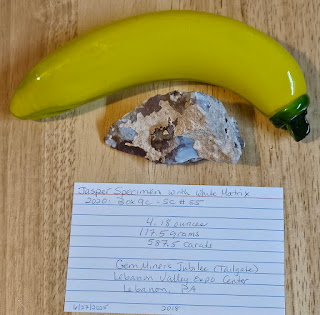 Jasper Specimen with White Matrix
2020: Box 9c - SC # 55
4.18 ounces
117.5 grams
587.5 carats
Gem Miners Jubilee (Tailgate)
Lebanon Valley Expo Center
Lebanon, PA
2018